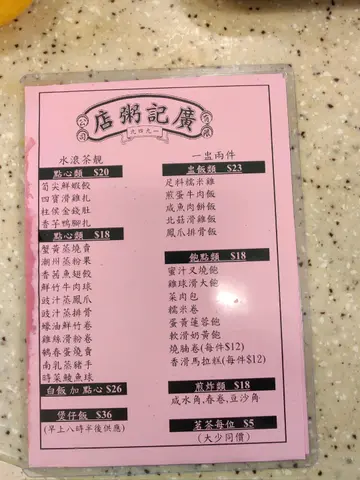 廣記粥店
有限
公司
一九四九
水滾茶靚
點心類 $20
筍尖鮮蝦餃
四寶滑雞扎
柱侯金錢肚
香芋鴨腳扎
點心類 $18
蟹黃蒸燒賣
潮州蒸粉果
香茜魚翅餃
鮮竹牛肉球
豉汁蒸鳳爪
豉汁蒸排骨
蠔油鮮竹卷
雞絲滑粉卷
鵪春蛋燒賣
南乳蒸豬手
時菜鯪魚球
白飯 加 點心 $26
煲仔飯 $36
(早上八時半後供應)
一盅兩件
盅飯類 $23
足料糯米雞
煎蛋牛肉飯
咸魚肉餅飯
北菇滑雞飯
鳳爪排骨飯
飽點類 $18
蜜汁叉燒飽
雞球滑大飽
菜肉包
糯米卷
蛋黃蓮蓉飽
軟滑奶黃飽
燒腩卷(每件$12)
香滑馬拉糕(每件$12)
煎炸類 $18
咸水角,春卷,豆沙角
茗茶每位 $5
(大少同價)